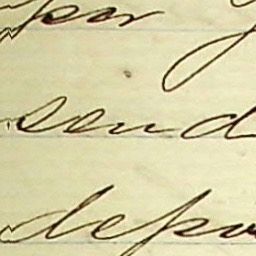 por
send
depo